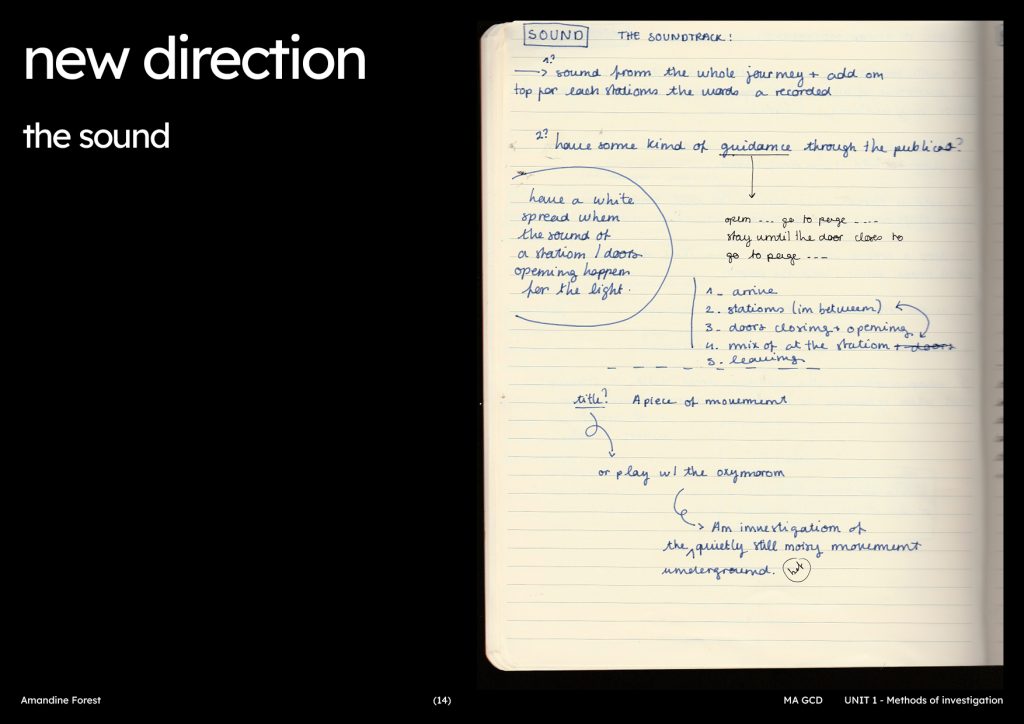 new direction
the sound
SOUND THE SOUNDTRACK:
1? → sound from the whole journey + add on
top for each stations the words a recorded
2? have some kind of guidance through the publicat?
have a white
spread when
the sound of
a station / doors
opening happen
for the light.
open --- go to page ----
stay until the door closes to
go to page ---
1 - arrive
2. stations (in between)
3 - doors closing + opening
4. mix of at the station + doors
5. leaving
title? A piece of movement
or play w/ the oxymoron
> An investigation of
the quietly still noisy movement
underground.
Amandine Forest (14) MA GCD UNIT 1 - Methods of investigation